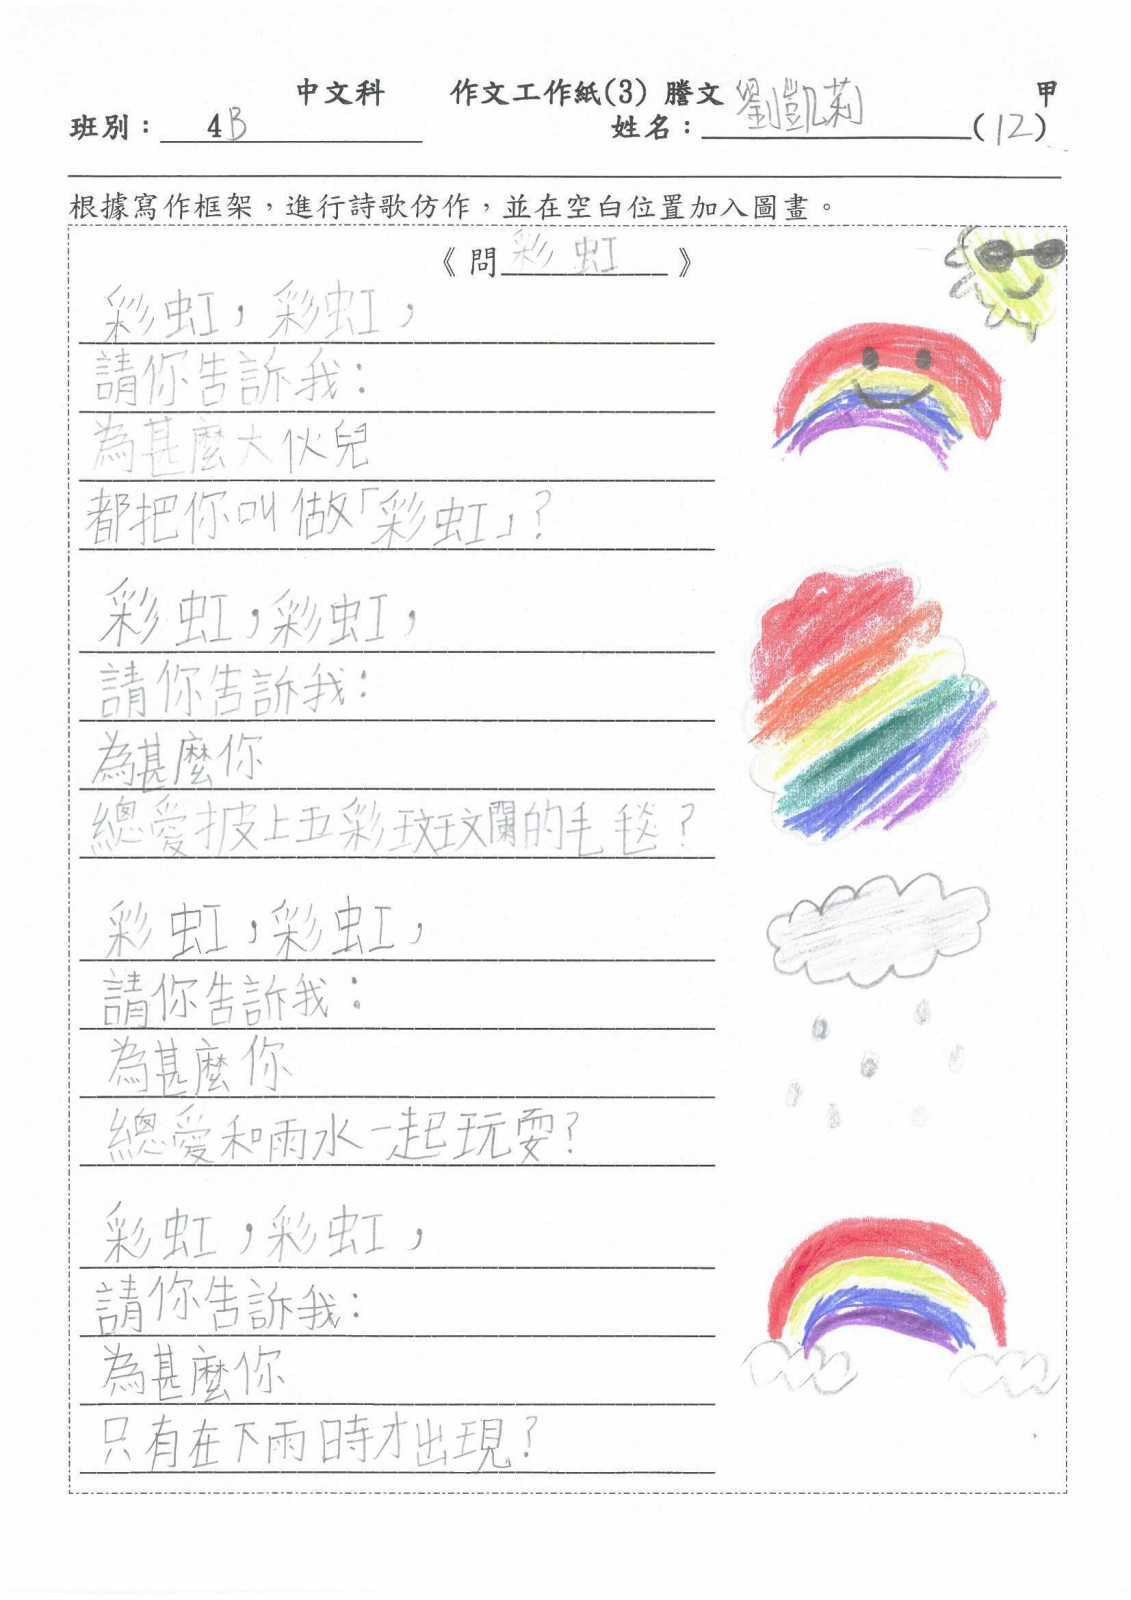 中文科 作文工作紙(3) 謄文 甲
班別：4B 姓名：劉凱莉(12)
根據寫作框架，進行詩歌仿作，並在空白位置加入圖畫。
《問彩虹》
彩虹，彩虹，
請你告訴我：
為甚麼大伙兒
都把你叫做「彩虹」？
彩虹，彩虹，
請你告訴我：
為甚麼你
總愛披上五彩玟玟斕的毛毯？
彩虹，彩虹，
請你告訴我：
為甚麼你
總愛和雨水一起玩耍？
彩虹，彩虹，
請你告訴我：
為甚麼你
只有在下雨時才出現？